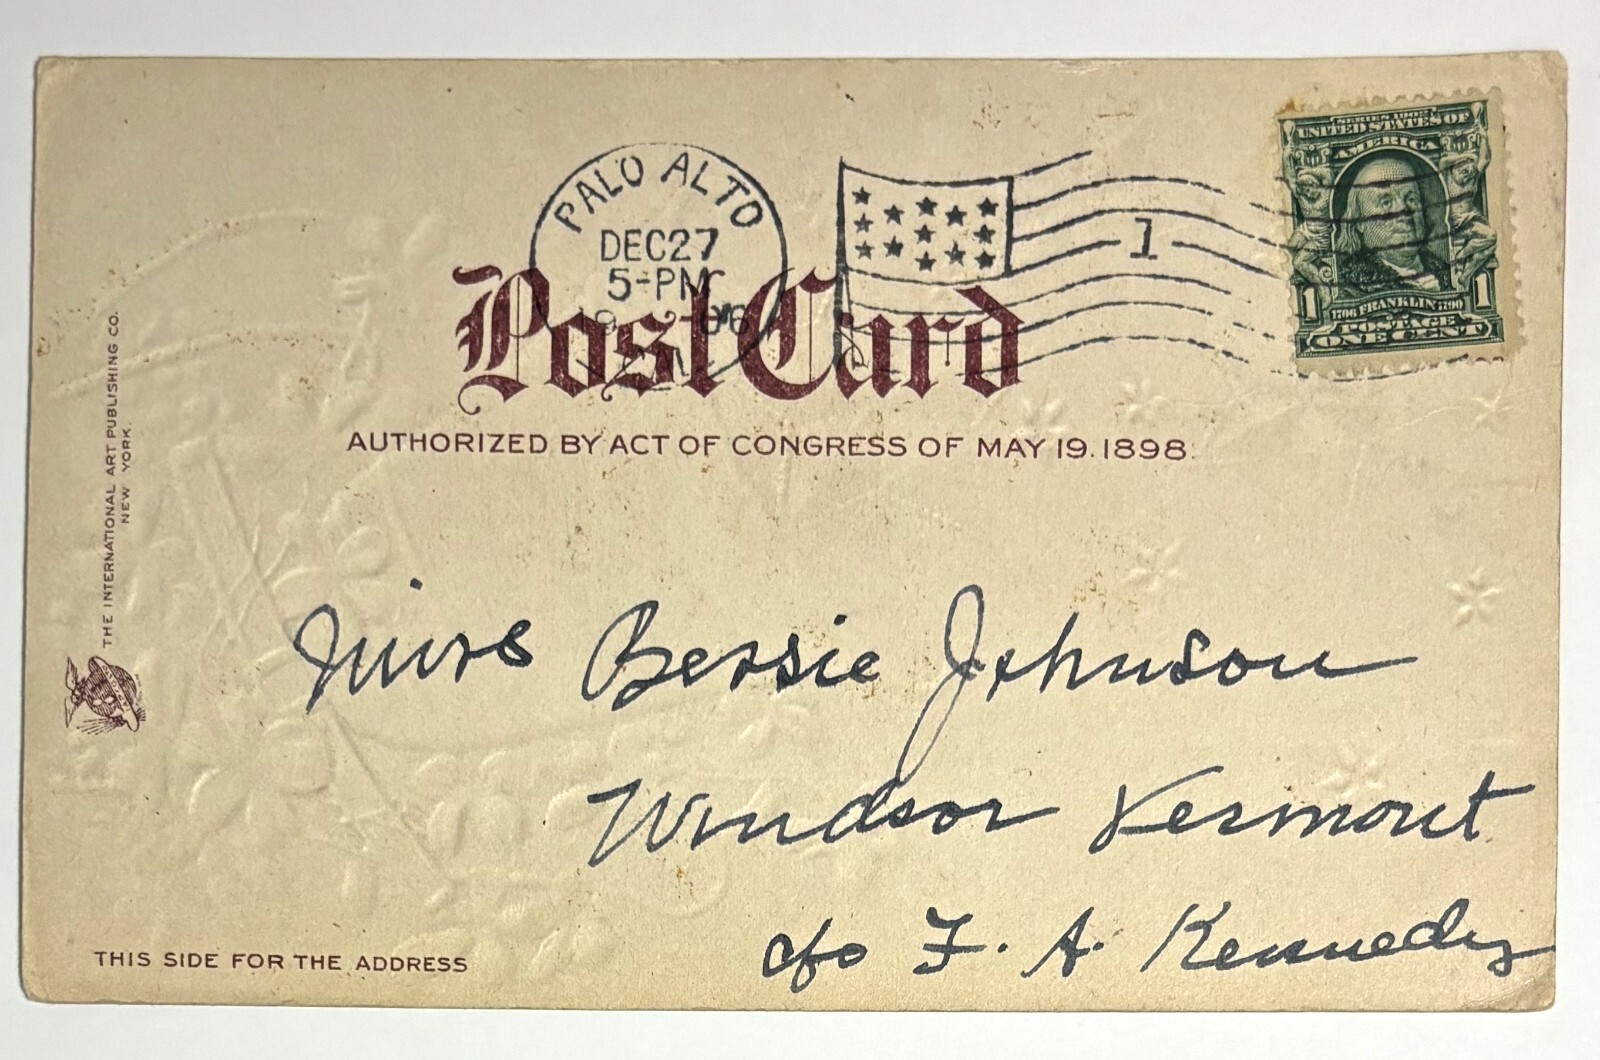 PALO ALTO
DEC27
5-PM
1
SERIES 1902
UNITED STATES OF
AMERICA
1706 FRANKLIN 1790
1 1
POSTAGE
ONE CENT
Post Card
AUTHORIZED BY ACT OF CONGRESS OF MAY 19. 1898.
THE INTERNATIONAL ART PUBLISHING CO.
NEW YORK.
Miss Bessie Johnson
Windsor Vermont
c/o F. A. Kennedy
THIS SIDE FOR THE ADDRESS